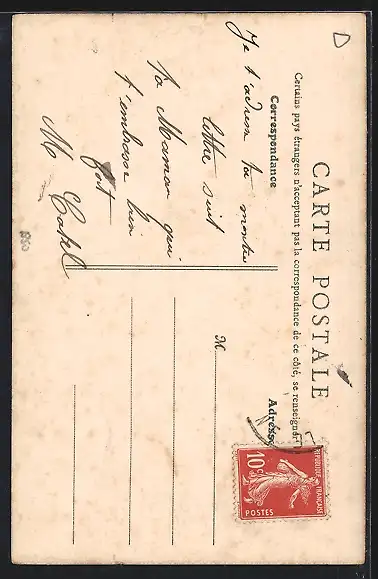 CARTE POSTALE
Certains pays étrangers n'acceptant pas la correspondance de ce côté, se renseigner
Correspondance
Adresse
Je t'adresse ta montre
lettre suit
Ta Maman qui
t'embrasse bien
fort
M
M.
RÉPUBLIQUE FRANÇAISE
10 c
POSTES
D